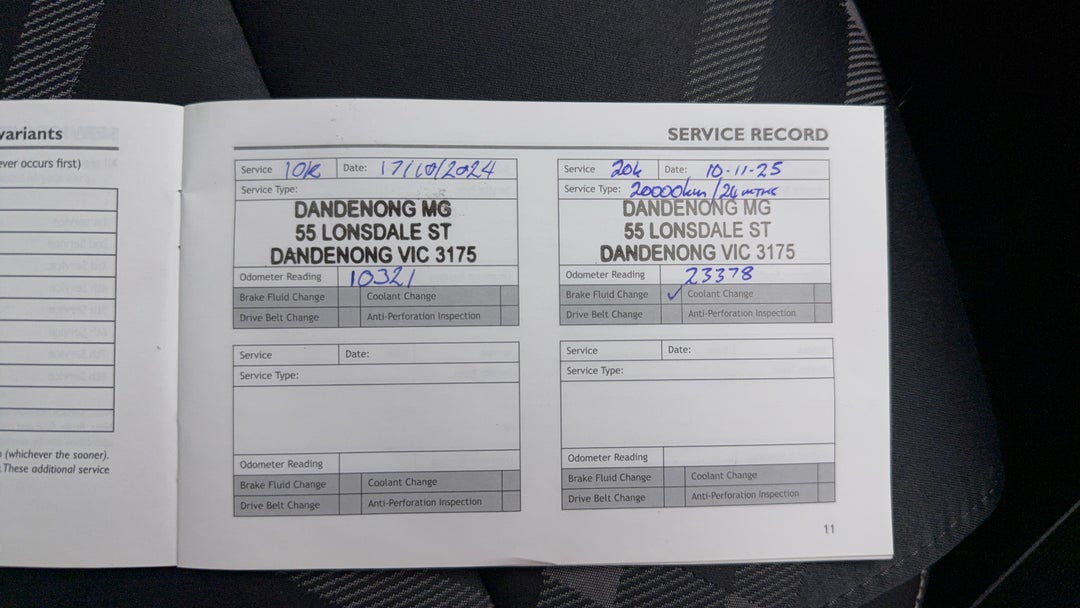 variants
ever occurs first)
(whichever the sooner).
These additional service
SERVICE RECORD
Service 10k Date: 17/10/2024
Service Type:
DANDENONG MG
55 LONSDALE ST
DANDENONG VIC 3175
Odometer Reading 10321
Brake Fluid Change Coolant Change
Drive Belt Change Anti-Perforation Inspection
Service 20k Date: 10-11-25
Service Type: 20000km/24 mths
DANDENONG MG
55 LONSDALE ST
DANDENONG VIC 3175
Odometer Reading 23378
Brake Fluid Change ✓ Coolant Change
Drive Belt Change Anti-Perforation Inspection
Service Date:
Service Type:
Odometer Reading
Brake Fluid Change Coolant Change
Drive Belt Change Anti-Perforation Inspection
Service Date:
Service Type:
Odometer Reading
Brake Fluid Change Coolant Change
Drive Belt Change Anti-Perforation Inspection
11